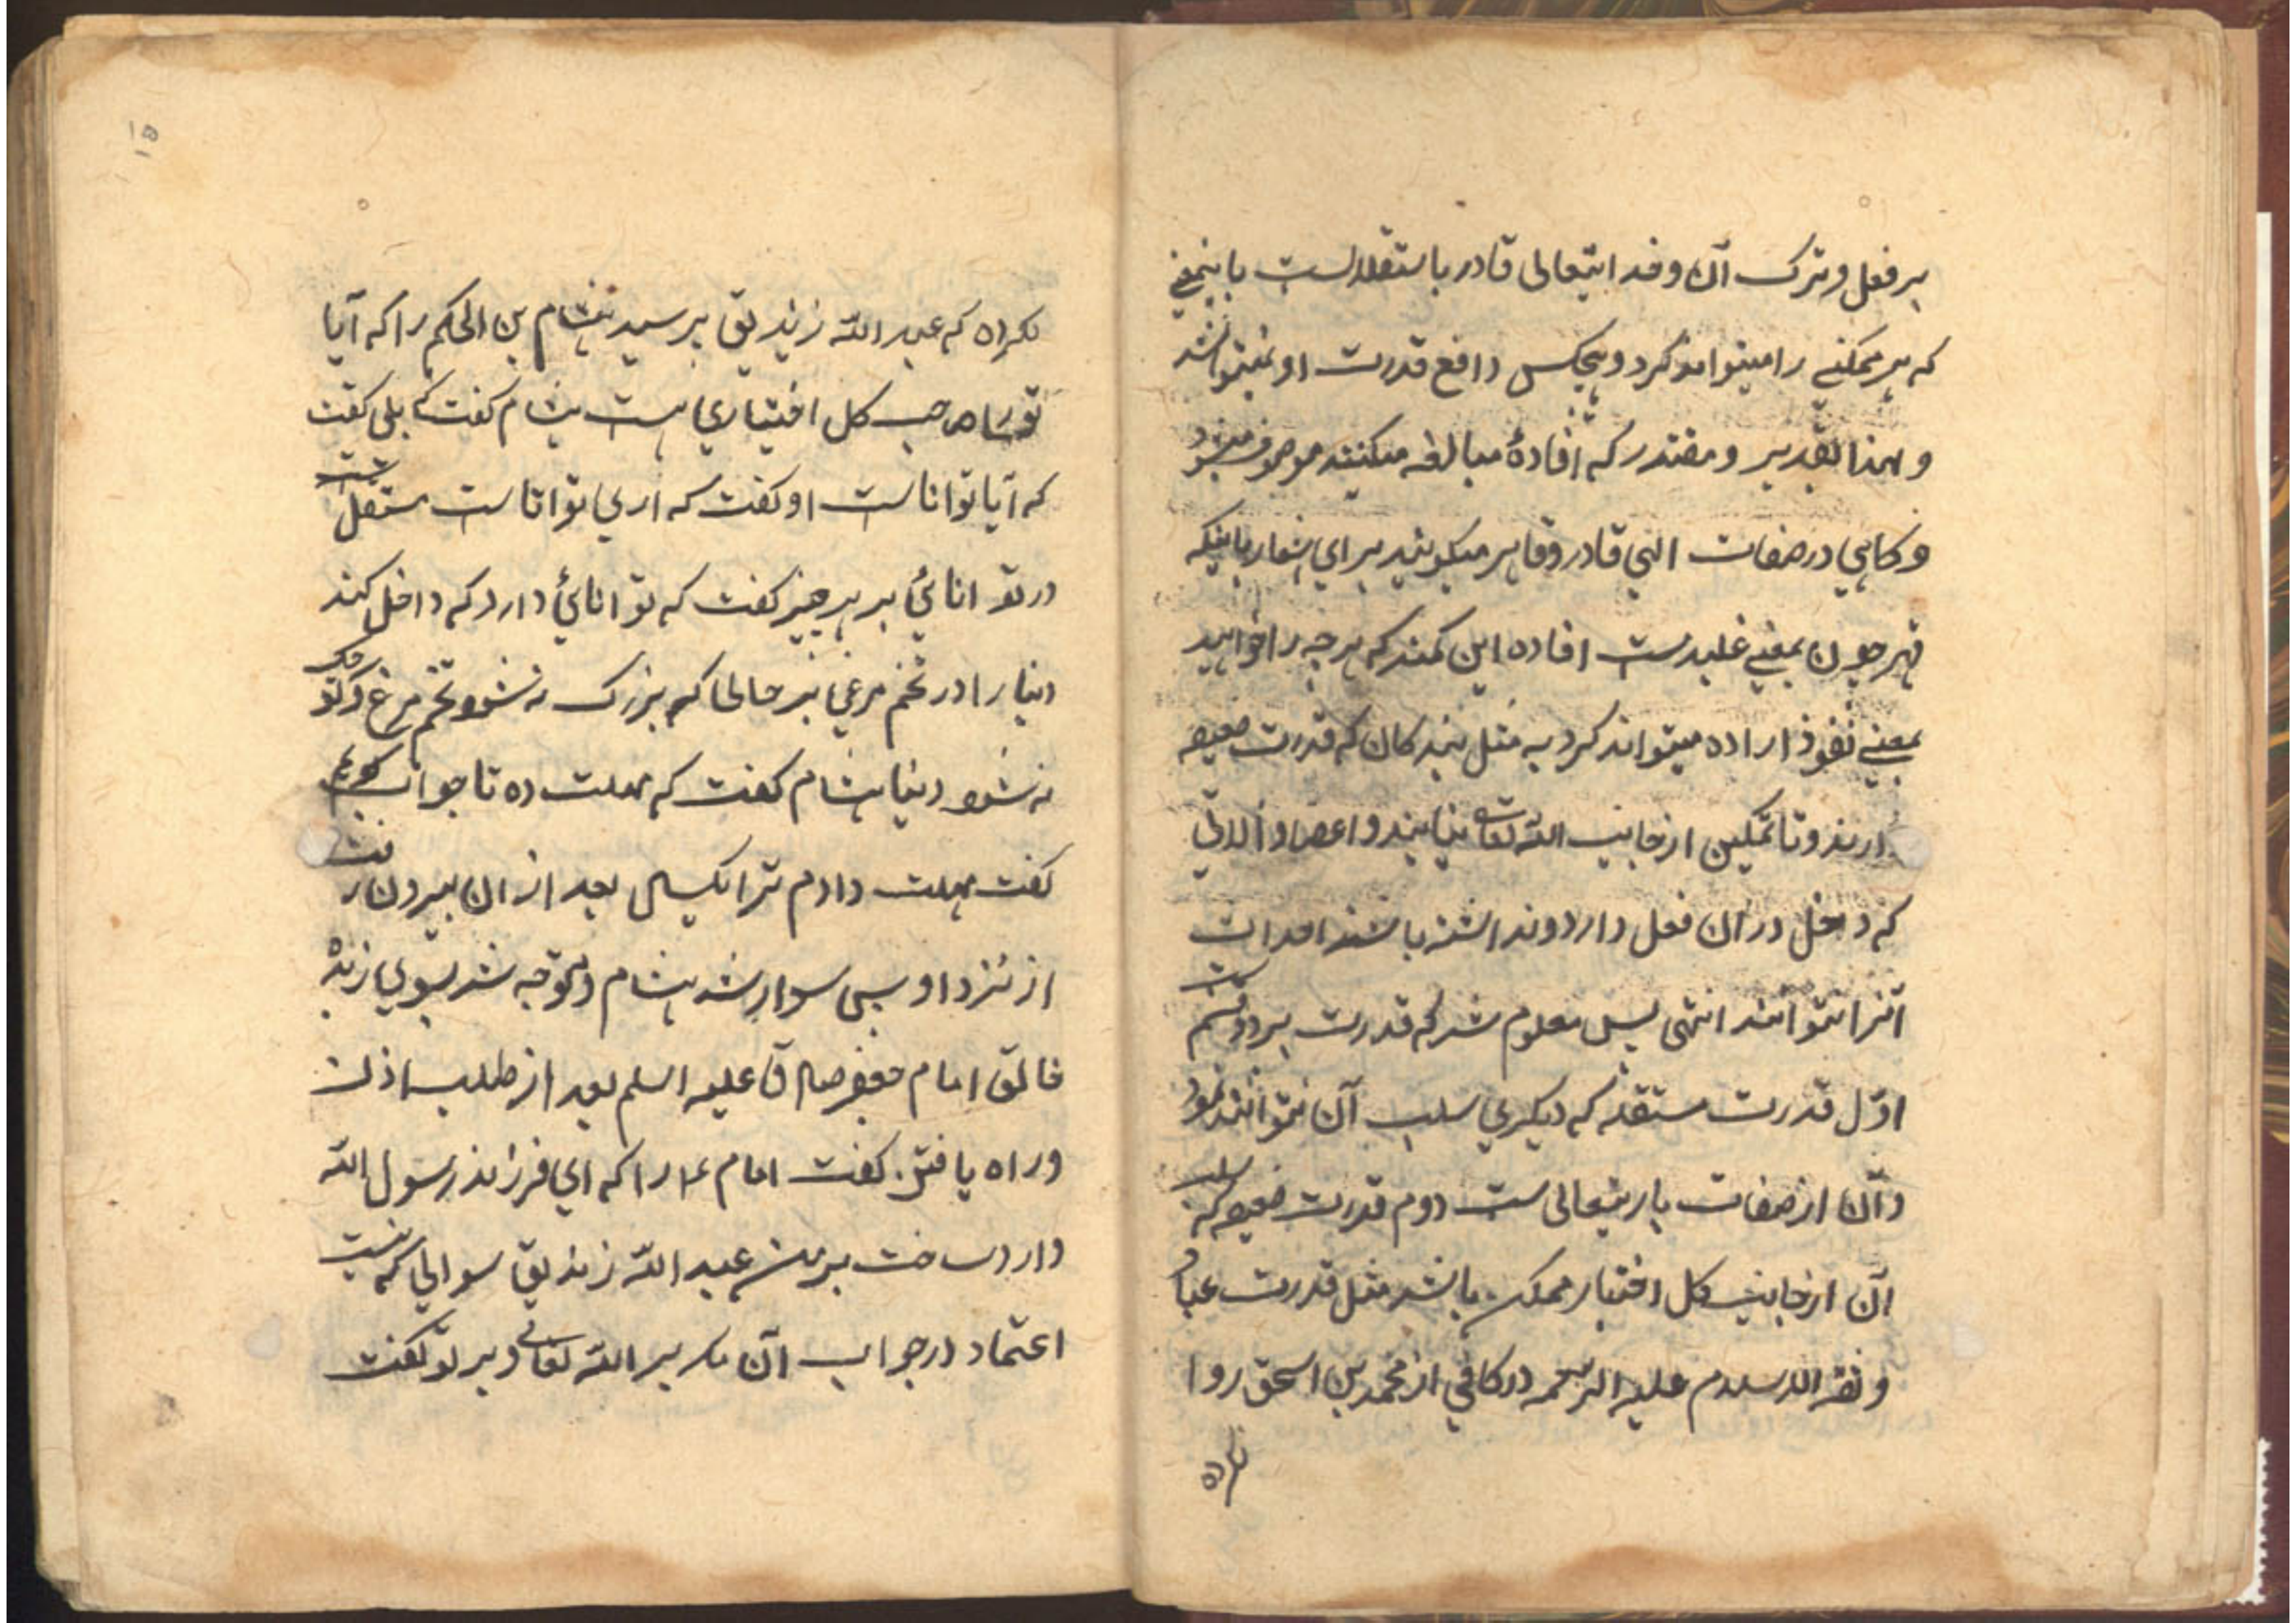 بر فعل و ترک آن و خدایتعالی قادر باستقلالست باینمعنے
که هر ممکنے را میتواند کرد و هیچکس دافع قدرت او نمیتواند شد
و لهذا بقدیر و مقتدر که افادۀ مبالغه میکنند موصوف میشود
و کاهی در صفات الهی قادر و قاهر میکویند برای اشعار باینکه
قهر چون بمعنے غلبه ست افاده این کند که هر چه را خواهد
بمعنے نفوذ اراده میتواند کرد نه مثل بندکان که قدرت ضعیفه
دارند و تا تمکین از جانب الله تعالی نیابند و اعضا و آلاتی
که دخل در ان فعل دارد و نداشته باشند احداث
آنرا نتوانند انتهی پس معلوم شد که قدرت بر دو قسمست
اوّل قدرت مستقله که دیکری سلب آن نتوانند نمود
و آن از صفات باریتعالی ست دوم قدرت ضعیفه که سلب
آن از جانب کل اختیار ممکن باشد مثل قدرت عباد
و ثقة الاسلام علیه الرحمه در کافی از محمد بن اسحق روا
نکرده
۱۵
نکرده که عبد الله زندیق پرسید هشام بن الحکم را که آیا
تو را صاحب کل اختیاری هست هشام کفت که بلی کفت
که آیا توانا ست او کفت که اری توانا ست مستقلّ ست
در توانائی بر هر چیز کفت که توانائی دارد که داخل کند
دنیا را در تخم مرغی بر حالها که بزرک نه شود تخم مرغ و کوچک
نه شود دنیا هشام کفت که مهلت ده تا جواب کویم
کفت مهلت دادم ترا یکسال بعد از ان بیرون رفت
از نزد او پس سوار شد هشام و متوجه شد بسوی
امام جعفر صادق علیه السلم بعد از طلب اذن
و راه یافتن کفت امام ع را که ای فرزند رسول الله
وارد ساخت بر من عبد الله زندیق سوالی که نیست
اعتماد در جواب آن مکر بر الله تعالی و بر تو کفت